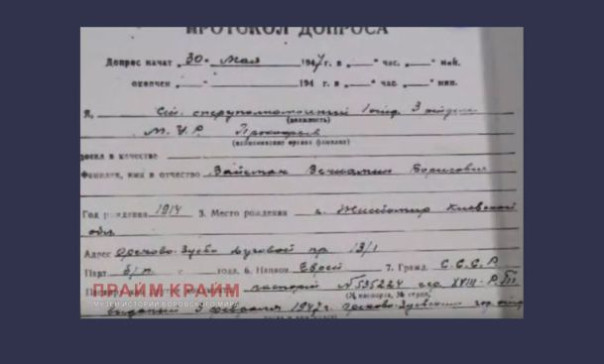 ПРОТОКОЛ ДОПРОСА
Допрос начат „30" мая 1947 г. в „ " час. мин.
окончен „ " 194 г. в „ " час. мин.
Я, Ст. оперуполномоченный 1 отд. 3 отдела
(должность)
М.У.Р. Прокофьев
в качестве
Фамилия, имя и отчество Вайсман Вениамин Борисович
Год рождения 1914 3. Место рождения г. Житомир Киевской
обл.
Адрес Орехово-Зуево Луговой пр 13/1
Парт. б/п 6. Национ. Еврей 7. Гражд. С.С.С.Р.
ПРАЙМ КРАЙМ
паспорт № 535224 XVIII-Р
выданый 3 февраля 1947г. Орехово-Зуевским гор.